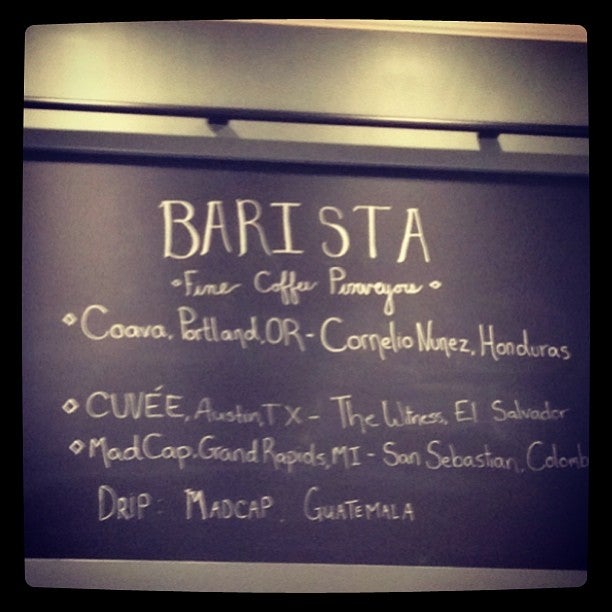 BARISTA
• Fine Coffee Purveyors •
◇ Coava, Portland, OR - Cornelio Nunez, Honduras
◇ CUVÉE, Austin, TX - The Witness, El Salvador
◇ MadCap, Grand Rapids, MI - San Sebastian, Colomb
DRIP: MADCAP, GUATEMALA